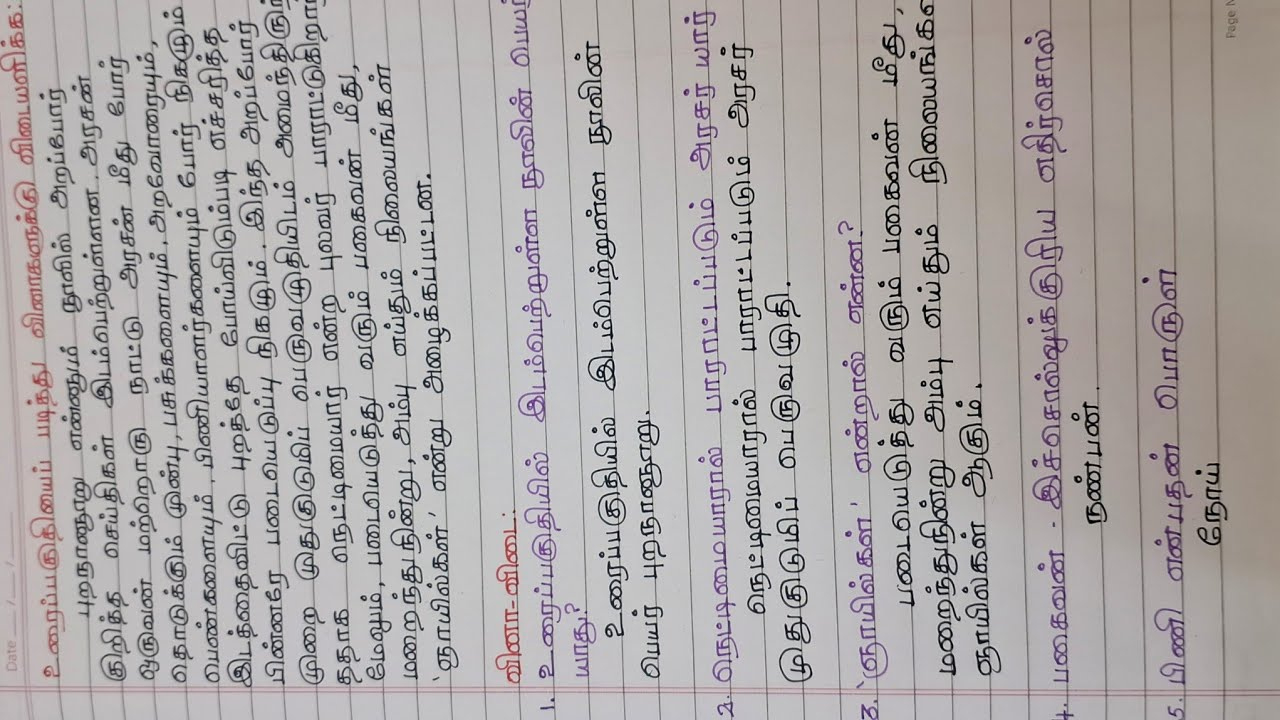 Date ___/___/___
உரைப்பகுதியைப் படித்து வினாகளுக்கு விடையளிக்க:
புறநானூறு என்னும் நூலில் அறப்போர்
குறித்த செய்திகள் இடம்பெற்றுள்ளன. அரசன்
ஒருவன் மற்றொரு நாட்டு அரசன் மீது போர்
தொடுக்கும் முன்பு, பசுக்களையும், அறவோரையும்,
பெண்களையும், பிணியாளர்களையும் போர் நிகழும்
இடத்தைவிட்டு புறத்தே போய்விடும்படி எச்சரித்த
பின்னரே படையெடுப்பு நிகழும். இந்த அறப்போர்
முறை முதுகுடுமிப் பெருவழுதியிடம் அமைந்திரு
ந்ததாக நெட்டிமையார் என்ற புலவர் பாராட்டுகிறா
மேலும், படையெடுத்து வரும் பகைவன் மீது,
மறைந்துநின்று, அம்பு எய்தும் நிலையங்கள்
'ஞாயில்கள்' என்று அழைக்கப்பட்டன.
வினா-விடை:
1. உரைப்பகுதியில் இடம்பெற்றுள்ள நூலின் பெயர்
யாது?
உரைப்பகுதியில் இடம்பெற்றுள்ள நூலின்
பெயர் புறநானூறு.
2. நெட்டிமையாரால் பாராட்டப்படும் அரசர் யார்
நெட்டிமையாரால் பாராட்டப்படும் அரசர்
முதுகுடுமிப் பெருவழுதி.
3. 'ஞாயில்கள்' என்றால் என்ன?
படையெடுத்து வரும் பகைவன் மீது,
மறைந்துநின்று அம்பு எய்தும் நிலையங்க
ஞாயில்கள் ஆகும்.
4. பகைவன் - இச்சொல்லுக்குரிய எதிர்சொல்
நண்பன்.
5. பிணி என்பதன் பொருள்
நோய்
Page N